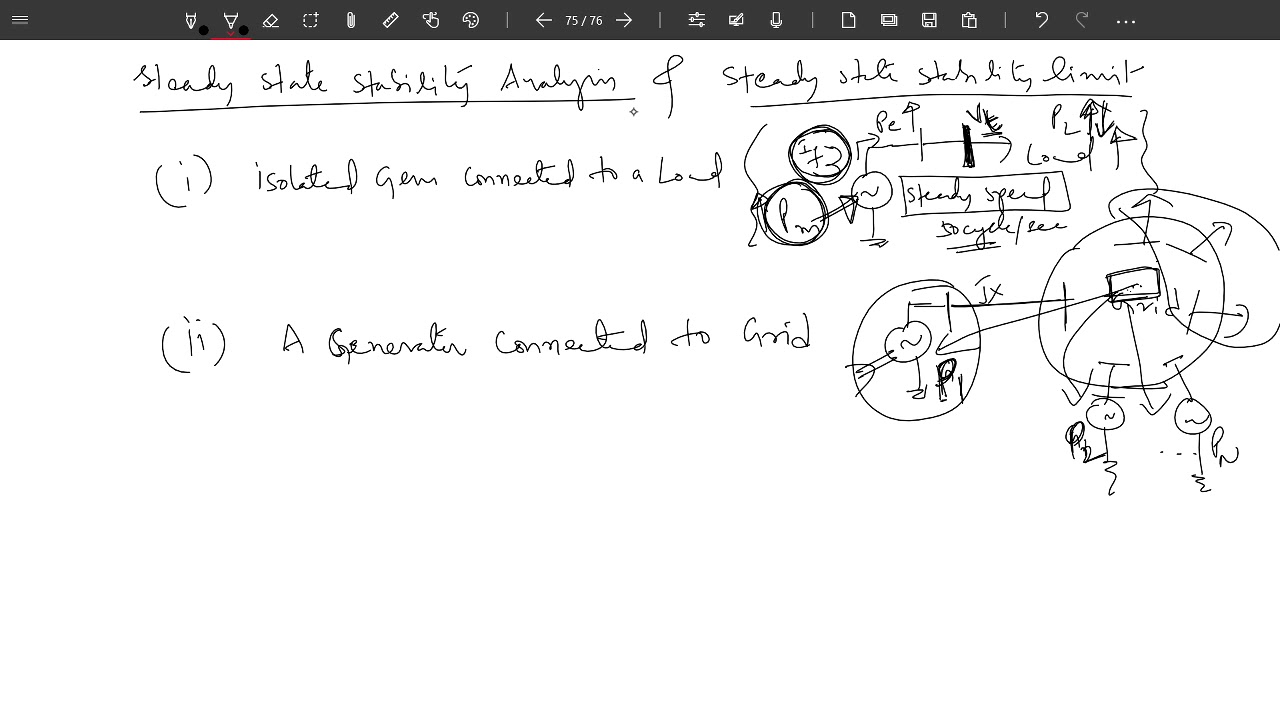 75 / 76
Steady state stability Analysis & Steady state stability limit
Pe
Vt
PL
Load
If
(i) isolated Gen connected to a Load
Pm
Steady speed
50 cycle/sec
jx
Grid
(ii) A Generator connected to Grid
P1
P2
.... PN